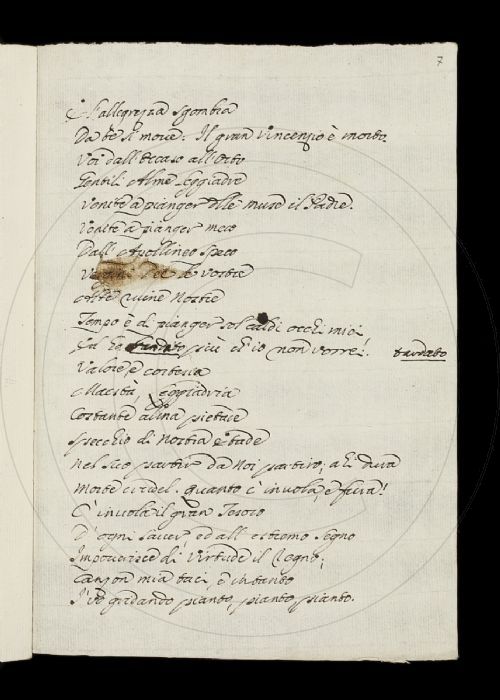 7
E l'allegrezza sgombra
Da te si move. Il gran Vincenzo è morto.
Voi dall'Occaso all'Orto
Gentili Alme leggiadre
Venite a pianger delle muse il Padre.
Venite a pianger meco
Dall'Apollineo speco
Vostre
rime Nostre
Tempo è di pianger sol caldi occhi miei
tardato più ch'io non vorrei. tardato
Valore, e cortesia
Maestà, leggiadria
Costante alma pietade
Specchio di Nostra etade
Nel suo partir da Noi partiro; ahi dura
Morte crudel. quanto c'invola, e fura!
C'invola il gran Tesoro
D'ogni saver, ed all'estremo segno
Impoverisce di Virtude il Regno;
Canzon mia taci, e
I'vò gridando pianto, pianto, pianto.